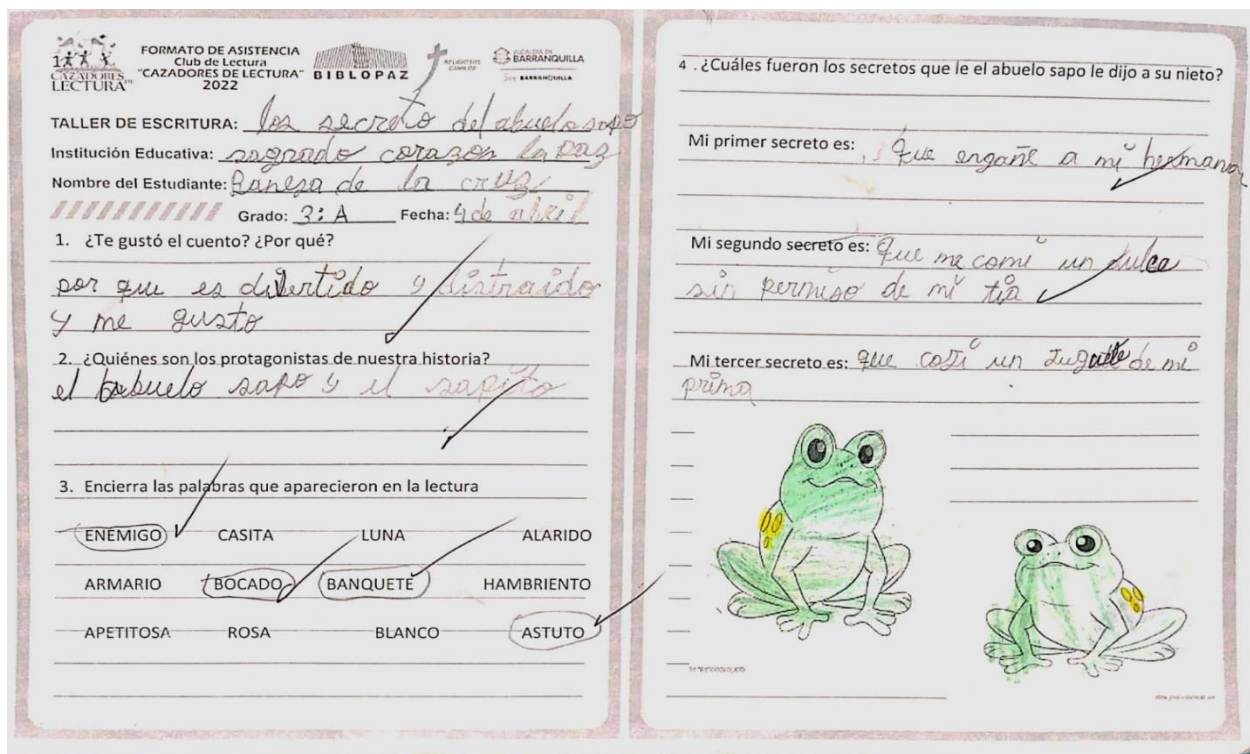 1
CAZADORES DE
LECTURA
FORMATO DE ASISTENCIA
Club de Lectura
"CAZADORES DE LECTURA"
2022
BIBLOPAZ
RELIGIOSOS
CAMILOS
ALCALDÍA DE
BARRANQUILLA
Soy BARRANQUILLA
TALLER DE ESCRITURA: los secreto del abuelo sapo
Institución Educativa: sagrado corazon la paz
Nombre del Estudiante: Banesa de la cruz
Grado: 3: A Fecha: 4 de abril
1. ¿Te gustó el cuento? ¿Por qué?
por que es divertido y distraido
y me gusto
2. ¿Quiénes son los protagonistas de nuestra historia?
el abuelo sapo y el sapito
3. Encierra las palabras que aparecieron en la lectura
ENEMIGO CASITA LUNA ALARIDO
ARMARIO BOCADO BANQUETE HAMBRIENTO
APETITOSA ROSA BLANCO ASTUTO
4 . ¿Cuáles fueron los secretos que le el abuelo sapo le dijo a su nieto?
Mi primer secreto es: Que engañe a mi hermana
Mi segundo secreto es: Que me comi un dulce
sin permiso de mi tia
Mi tercer secreto es: que coji un Juguete de mi
prima